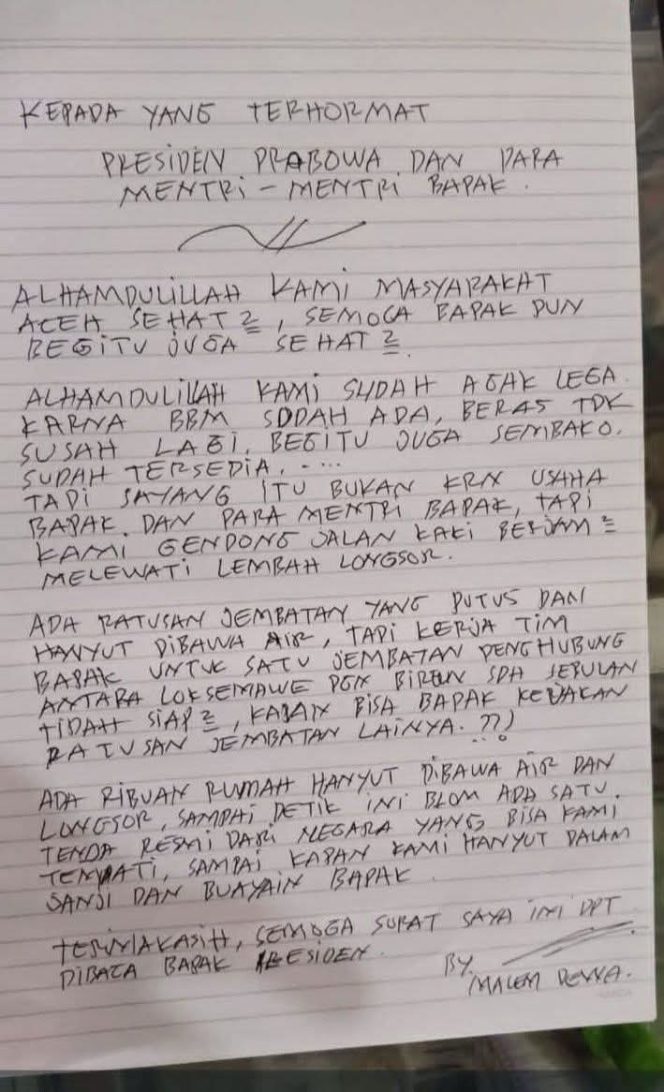 KEPADA YANG TERHORMAT
PRESIDEN PRABOWA DAN PARA
MENTRI-MENTRI BAPAK.
ALHAMDULILLAH KAMI MASYARAKAT
ACEH SEHAT2, SEMOGA BAPAK PUN
BEGITU JUGA SEHAT2.
ALHAMDULILLAH KAMI SUDAH AGAK LEGA
KARNA BBM SODAH ADA, BERAS TDK
SUSAH LAGI, BEGITU JUGA SEMBAKO.
SUDAH TERSEDIA. ....
TAPI SAYANG ITU BUKAN KRN USAHA
BAPAK DAN PARA MENTRI BAPAK, TAPI
KAMI GENDONG JALAN KAKI BERJAM2
MELEWATI LEMBAH LONGSOR.
ADA RATUSAN JEMBATAN YANG PUTUS DAN
HANYUT DIBAWA AIR, TAPI KERJA TIM
BAPAK UNTUK SATU JEMBATAN PENGHUBUNG
ANTARA LOKSEMAWE DGN BIREUN SDH SEBULAN
TIDAH SIAP2, KAPAN BISA BAPAK KERJAKAN
RATUSAN JEMBATAN LAINYA.??)
ADA RIBUAN RUMAH HANYUT DIBAWA AIR DAN
LONGSOR, SAMPAI DETIK INI BLOM ADA SATU.
TENDA RESMI DARI NEGARA YANG BISA KAMI
TEMPATI, SAMPAI KAPAN KAMI HANYUT DALAM
SANJI DAN BUAYAIN BAPAK.
TERIMAKASIH, SEMOGA SURAT SAYA INI DPT
DIBACA BAPAK PRESIDEN.
BY.
MALEM DEWA.